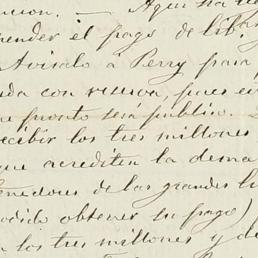 ncion. — Aqui ha
pender el pago de lib
Avisalo á Perry para
da con reserva, pues en
pronto será publico.
recibir los tres millones
que acrediten la dema
tenedores de las grandes li
podido obtener su pago)
n los tres millones y de